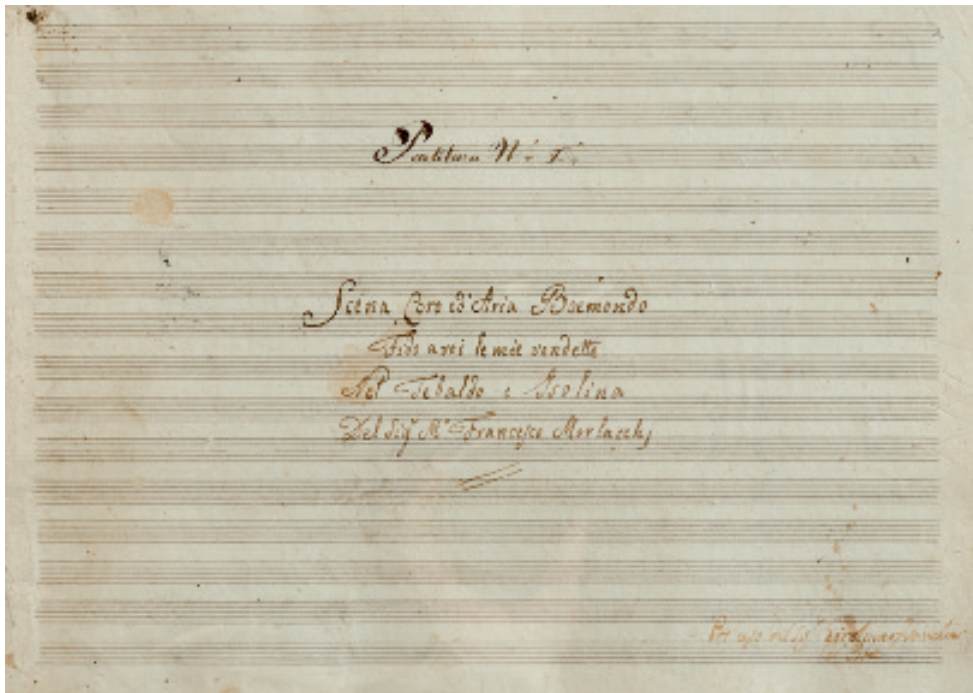 Partitura N.
Scena, Coro ed' Aria Boemondo
Fido a voi le mie vendette
Nel Tebaldo e Isolina
Del Sigr. Mo. Francesco Morlacchj
Per uso del Sigr.